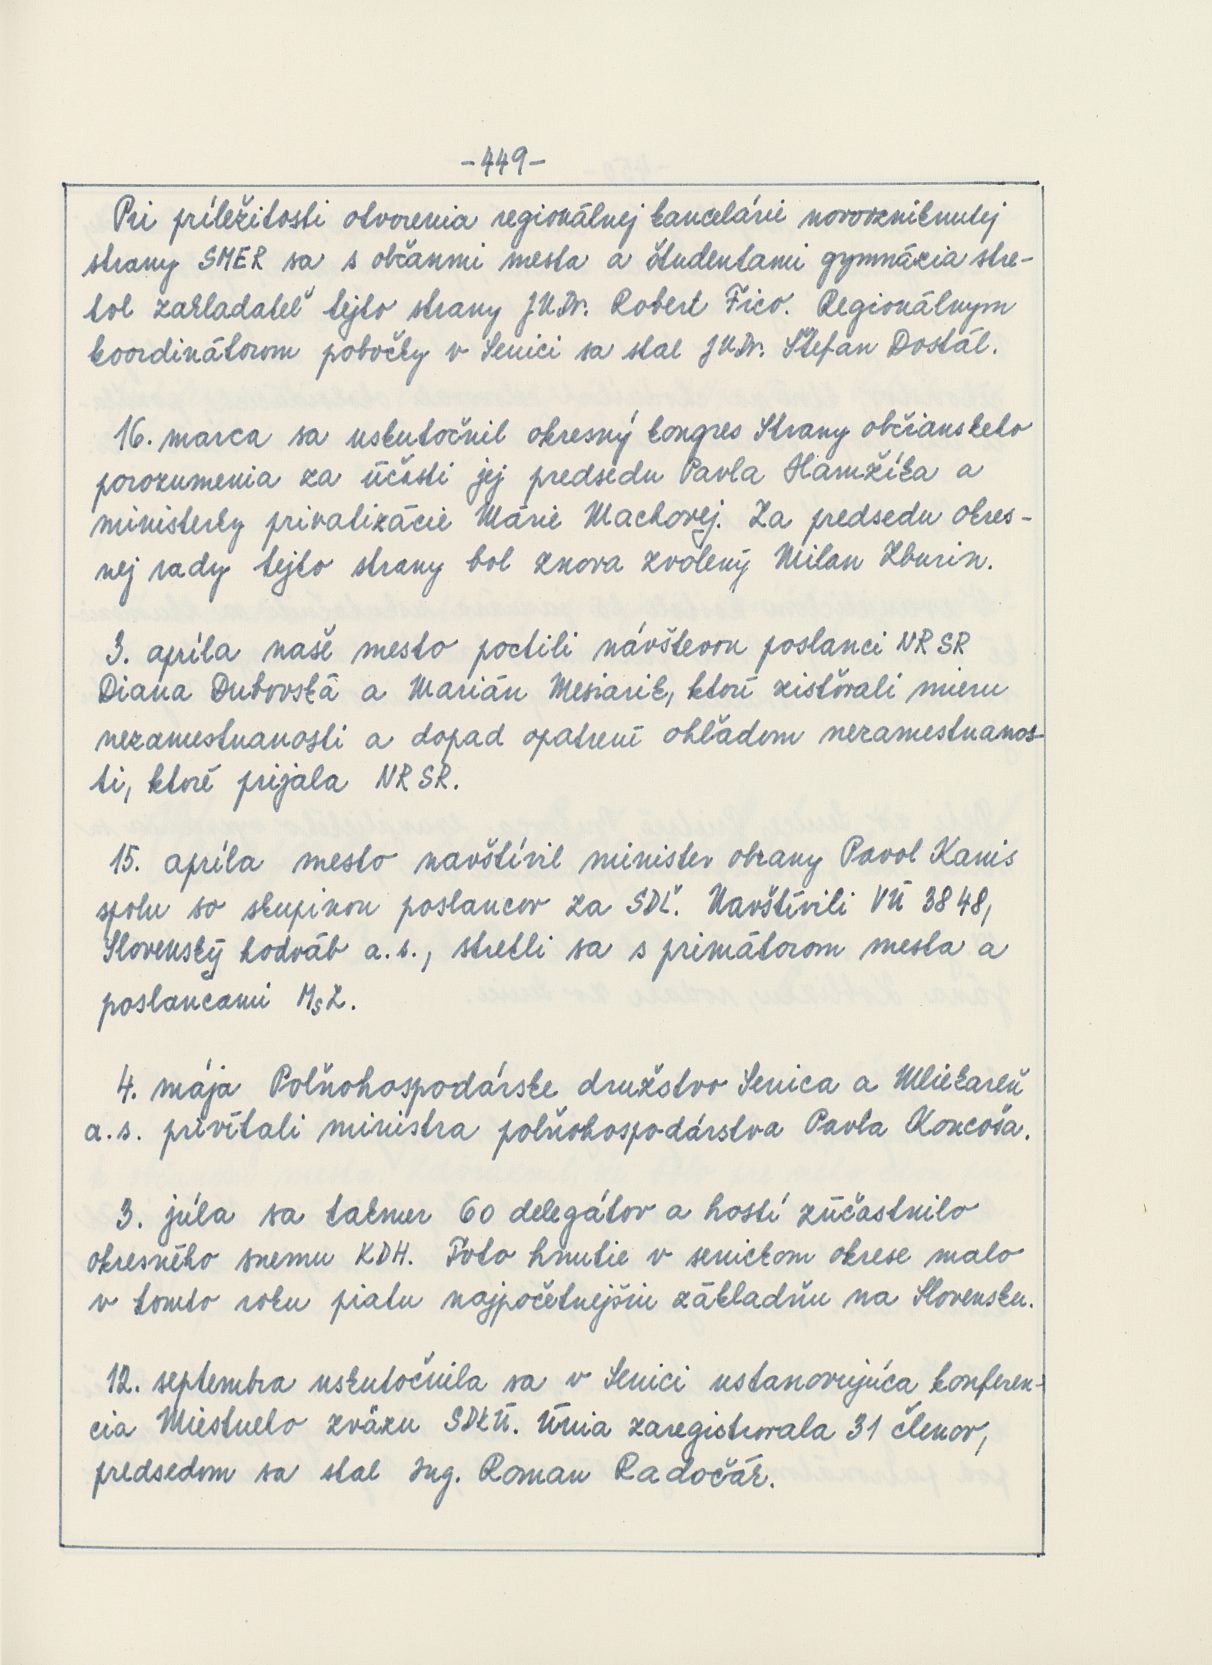 -449-
Pri príležitosti otvorenia regionálnej kancelárie novovzniknutej
strany SMER sa s občanmi mesta a študentami gymnázia stre-
tol zakladateľ tejto strany JUDr. Robert Fico. Regionálnym
koordinátorom pobočky v Senici sa stal JUDr. Štefan Dostál.
16. marca sa uskutočnil okresný kongres Strany občianskeho
porozumenia za účasti jej predsedu Pavla Hamžíka a
ministerky privatizácie Márie Machovej. Za predsedu okres-
nej rady tejto strany bol znova zvolený Milan Zburin.
3. apríla naše mesto poctili návštevou poslanci NR SR
Diana Dubovská a Marián Mesiarik, ktorí zisťovali mieru
nezamestnanosti a dopad opatrení ohľadom nezamestnanos-
ti, ktoré prijala NR SR.
15. apríla mesto navštívil minister obrany Pavol Kanis
spolu so skupinou poslancov za SDĽ. Navštívili VÚ 3848,
Slovenský hodváb a.s., stretli sa s primátorom mesta a
poslancami MsZ.
4. mája Poľnohospodárske družstvo Senica a Mliekareň
a.s. privítali ministra poľnohospodárstva Pavla Koncoša.
3. júla sa takmer 60 delegátov a hostí zúčastnilo
okresného snemu KDH. Toto hnutie v senickom okrese malo
v tomto roku piatu najpočetnejšiu základňu na Slovensku.
12. septembra uskutočnila sa v Senici ustanovujúca konferen-
cia Miestneho zväzu SDKÚ. Únia zaregistrovala 31 členov,
predsedom sa stal Ing. Roman Radočák.